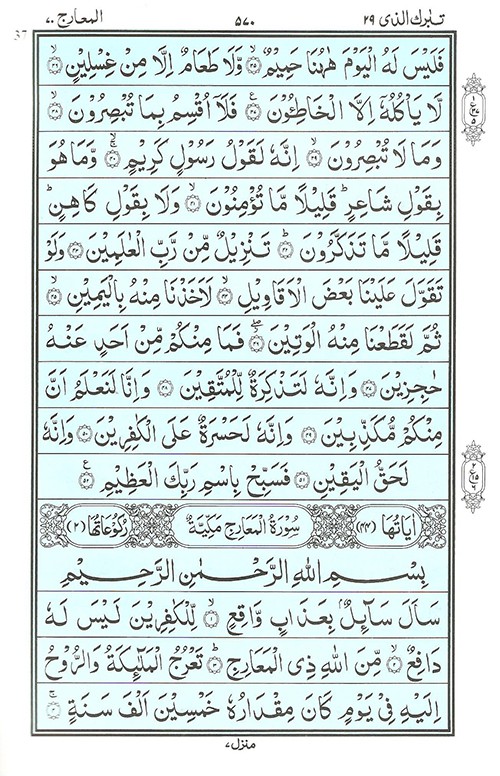 تبٰرك الذى ٢٩ ٥٧٠ المعارج ٧٠
فَلَيْسَ لَهُ الْيَوْمَ هٰهُنَا حَمِيْمٌ ۙ﴿٣٥﴾ وَّلَا طَعَامٌ اِلَّا مِنْ غِسْلِيْنٍ ۙ﴿٣٦﴾
لَّا يَاْكُلُهٗٓ اِلَّا الْخَاطِـُٔوْنَ ﴿٣٧﴾ۧ فَلَآ اُقْسِمُ بِمَا تُبْصِرُوْنَ ۙ﴿٣٨﴾
وَمَا لَا تُبْصِرُوْنَ ۙ﴿٣٩﴾ اِنَّهٗ لَقَوْلُ رَسُوْلٍ كَرِيْمٍ ۚۙ﴿٤٠﴾ وَّمَا هُوَ
بِقَوْلِ شَاعِرٍ ؕ قَلِيْلًا مَّا تُؤْمِنُوْنَ ۙ﴿٤١﴾ وَلَا بِقَوْلِ كَاهِنٍ ؕ
قَلِيْلًا مَّا تَذَكَّرُوْنَ ؕ﴿٤٢﴾ تَنْزِيْلٌ مِّنْ رَّبِّ الْعٰلَمِيْنَ ﴿٤٣﴾ وَلَوْ
تَقَوَّلَ عَلَيْنَا بَعْضَ الْاَقَاوِيْلِ ۙ﴿٤٤﴾ لَاَخَذْنَا مِنْهُ بِالْيَمِيْنِ ۙ﴿٤٥﴾
ثُمَّ لَقَطَعْنَا مِنْهُ الْوَتِيْنَ ۖ﴿٤٦﴾ فَمَا مِنْكُمْ مِّنْ اَحَدٍ عَنْهُ
حٰجِزِيْنَ ﴿٤٧﴾ وَاِنَّهٗ لَتَذْكِرَةٌ لِّلْمُتَّقِيْنَ ﴿٤٨﴾ وَاِنَّا لَنَعْلَمُ اَنَّ
مِنْكُمْ مُّكَذِّبِيْنَ ﴿٤٩﴾ وَاِنَّهٗ لَحَسْرَةٌ عَلَى الْكٰفِرِيْنَ ﴿٥٠﴾ وَاِنَّهٗ
لَحَقُّ الْيَقِيْنِ ﴿٥١﴾ فَسَبِّحْ بِاسْمِ رَبِّكَ الْعَظِيْمِ ﴿٥٢﴾ۧ
اٰيَاتُهَا (٤٤) سُوْرَةُ الْمَعَارِجِ مَكِّيَّةٌ رُكُوْعَاتُهَا (٢)
بِسْمِ اللهِ الرَّحْمٰنِ الرَّحِيْمِ
سَاَلَ سَآئِلٌۢ بِعَذَابٍ وَّاقِعٍ ۙ﴿١﴾ لِّلْكٰفِرِيْنَ لَيْسَ لَهٗ
دَافِعٌ ۙ﴿٢﴾ مِّنَ اللهِ ذِى الْمَعَارِجِ ؕ﴿٣﴾ تَعْرُجُ الْمَلٰٓئِكَةُ وَالرُّوْحُ
اِلَيْهِ فِيْ يَوْمٍ كَانَ مِقْدَارُهٗ خَمْسِيْنَ اَلْفَ سَنَةٍ ۚ﴿٤﴾
منزل ٧